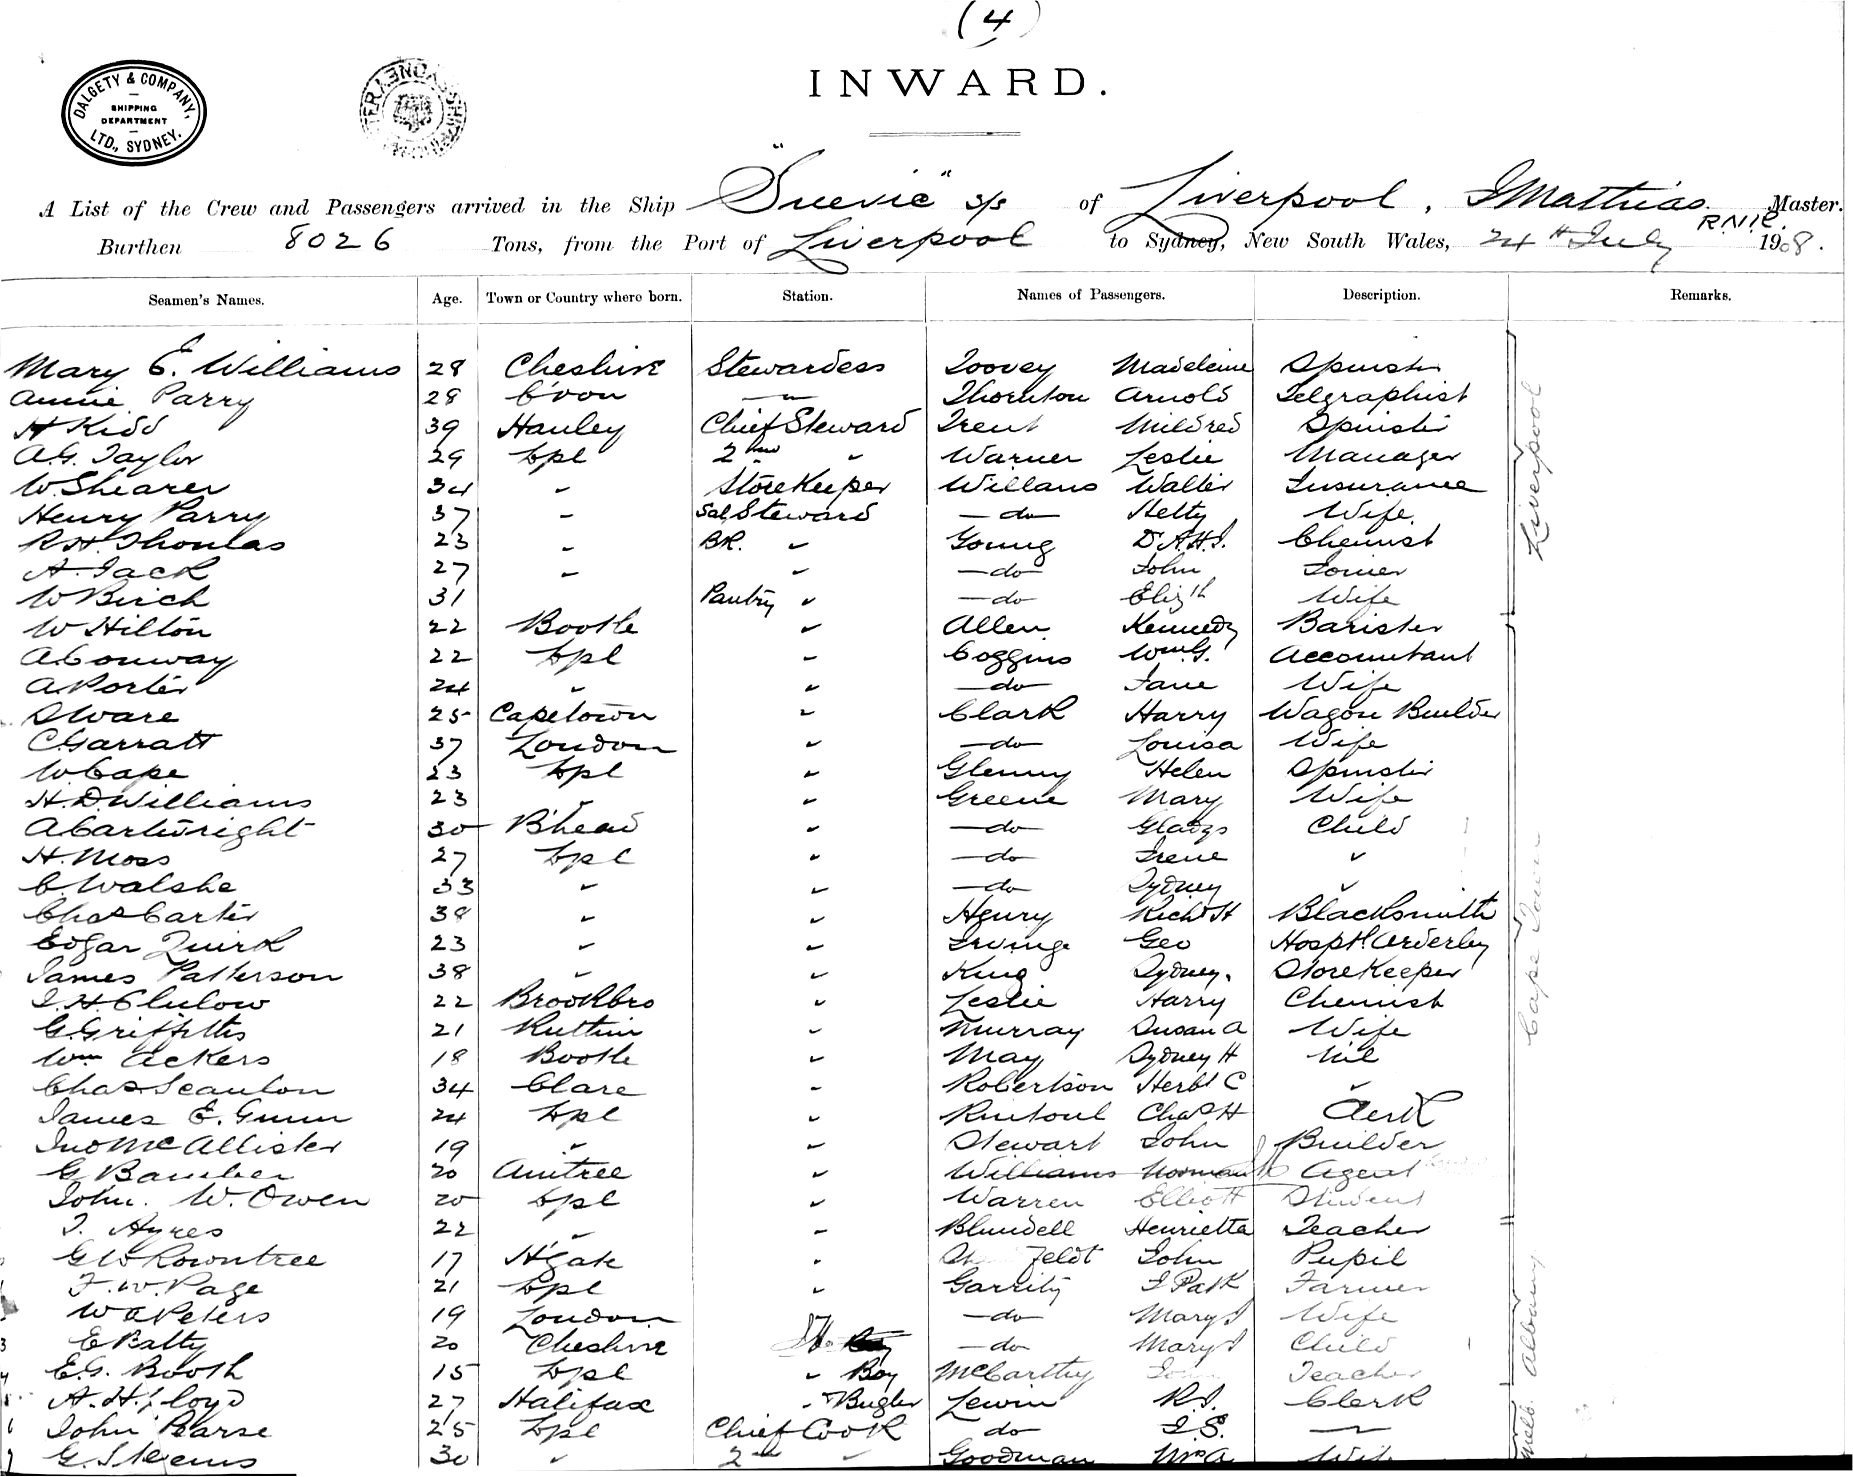 (4)
DALGETY & COMPANY,
SHIPPING
DEPARTMENT
LTD., SYDNEY.
INWARD.
A List of the Crew and Passengers arrived in the Ship "Suevic" s/s of Liverpool, Mathias R.N.R. Master.
Burthen 8026 Tons, from the Port of Liverpool to Sydney, New South Wales, 24th July 1908.
Seamen's Names. Age. Town or Country where born. Station. Names of Passengers. Description. Remarks.
Mary E. Williams 28 Cheshire Stewardess Toovey Madeleine Spinster
Annie Parry 28 C'von " Thornton Arnold Telgraphist
H Kidd 39 Hanley Chief Steward Trent Mildred Spinster
A.G. Taylor 29 Lpl 2nd " Warner Leslie Manager
W. Shearer 34 " StoreKeeper Willans Walter Insurance
Henry Parry 37 " Sal. Steward do Hetty Wife
R.H. Thomas 23 " BR. " Young D.A.H.J. Chemist
A. Jack 27 " " do John Joiner
W Birch 31 Pantry " do Elizth Wife
W Hilton 22 Bootle " Allen Kennedy Barister
A Conway 22 Lpl " Coggins Wm G. Accountant
A. Porter 24 " " do Jane Wife
S Ware 25 Capetown " Clark Harry Wagon Builder
C Garratt 37 London " do Louisa Wife
W. Cape 23 Lpl " Glenny Helen Spinster
H. D. Williams 23 " " Greene Mary Wife
A Cartwright 30 B'head " do Gladys Child
H. Moss 27 Lpl " do Irene "
C. Walshe 33 " " do Sydney "
Chas Carter 38 " " Henry Richd H Blacksmith
Edgar Quirk 23 " " Irvinge Geo Hosptl. Orderley
James Patterson 38 " " King Sydney. StoreKeeper
J. H. Clulow 22 Brookbro " Leslie Harry Chemist
G. Griffiths 21 Ruthin " Murray Susan A Wife
Wm Ackers 18 Bootle " May Sydney H Nil
Chas Scanlon 34 Clare " Robertson Herbt C "
James E. Gunn 24 Lpl " Rintoul Chas H Clerk
Jno McAllister 19 " " Stewart John Builder
G. Bamber 20 Aintree " Williams Norman Agent
John. W. Owen 20 Lpl " Warren Elliott Student
T. Ayres 22 " " Blundell Henrietta Teacher
G W Rowntree 17 H'gate " feldt John Pupil
F. W. Page 21 Lpl " Garrity J Patk Farmer
W A Peters 19 London do Mary J Wife
E Batty 20 Cheshire do Mary J Child
E.G. Booth 15 Lpl " Boy McCarthy Teacher
A. H. Lloyd 27 Halifax " Bugler Lewin R.J. Clerk
John Pearse 25 Lpl Chief Cook do J.S.
G. Stevens 30 " 2nd " Goodman Mrs A Wife
Liverpool
Cape Town
Albany
Melb.